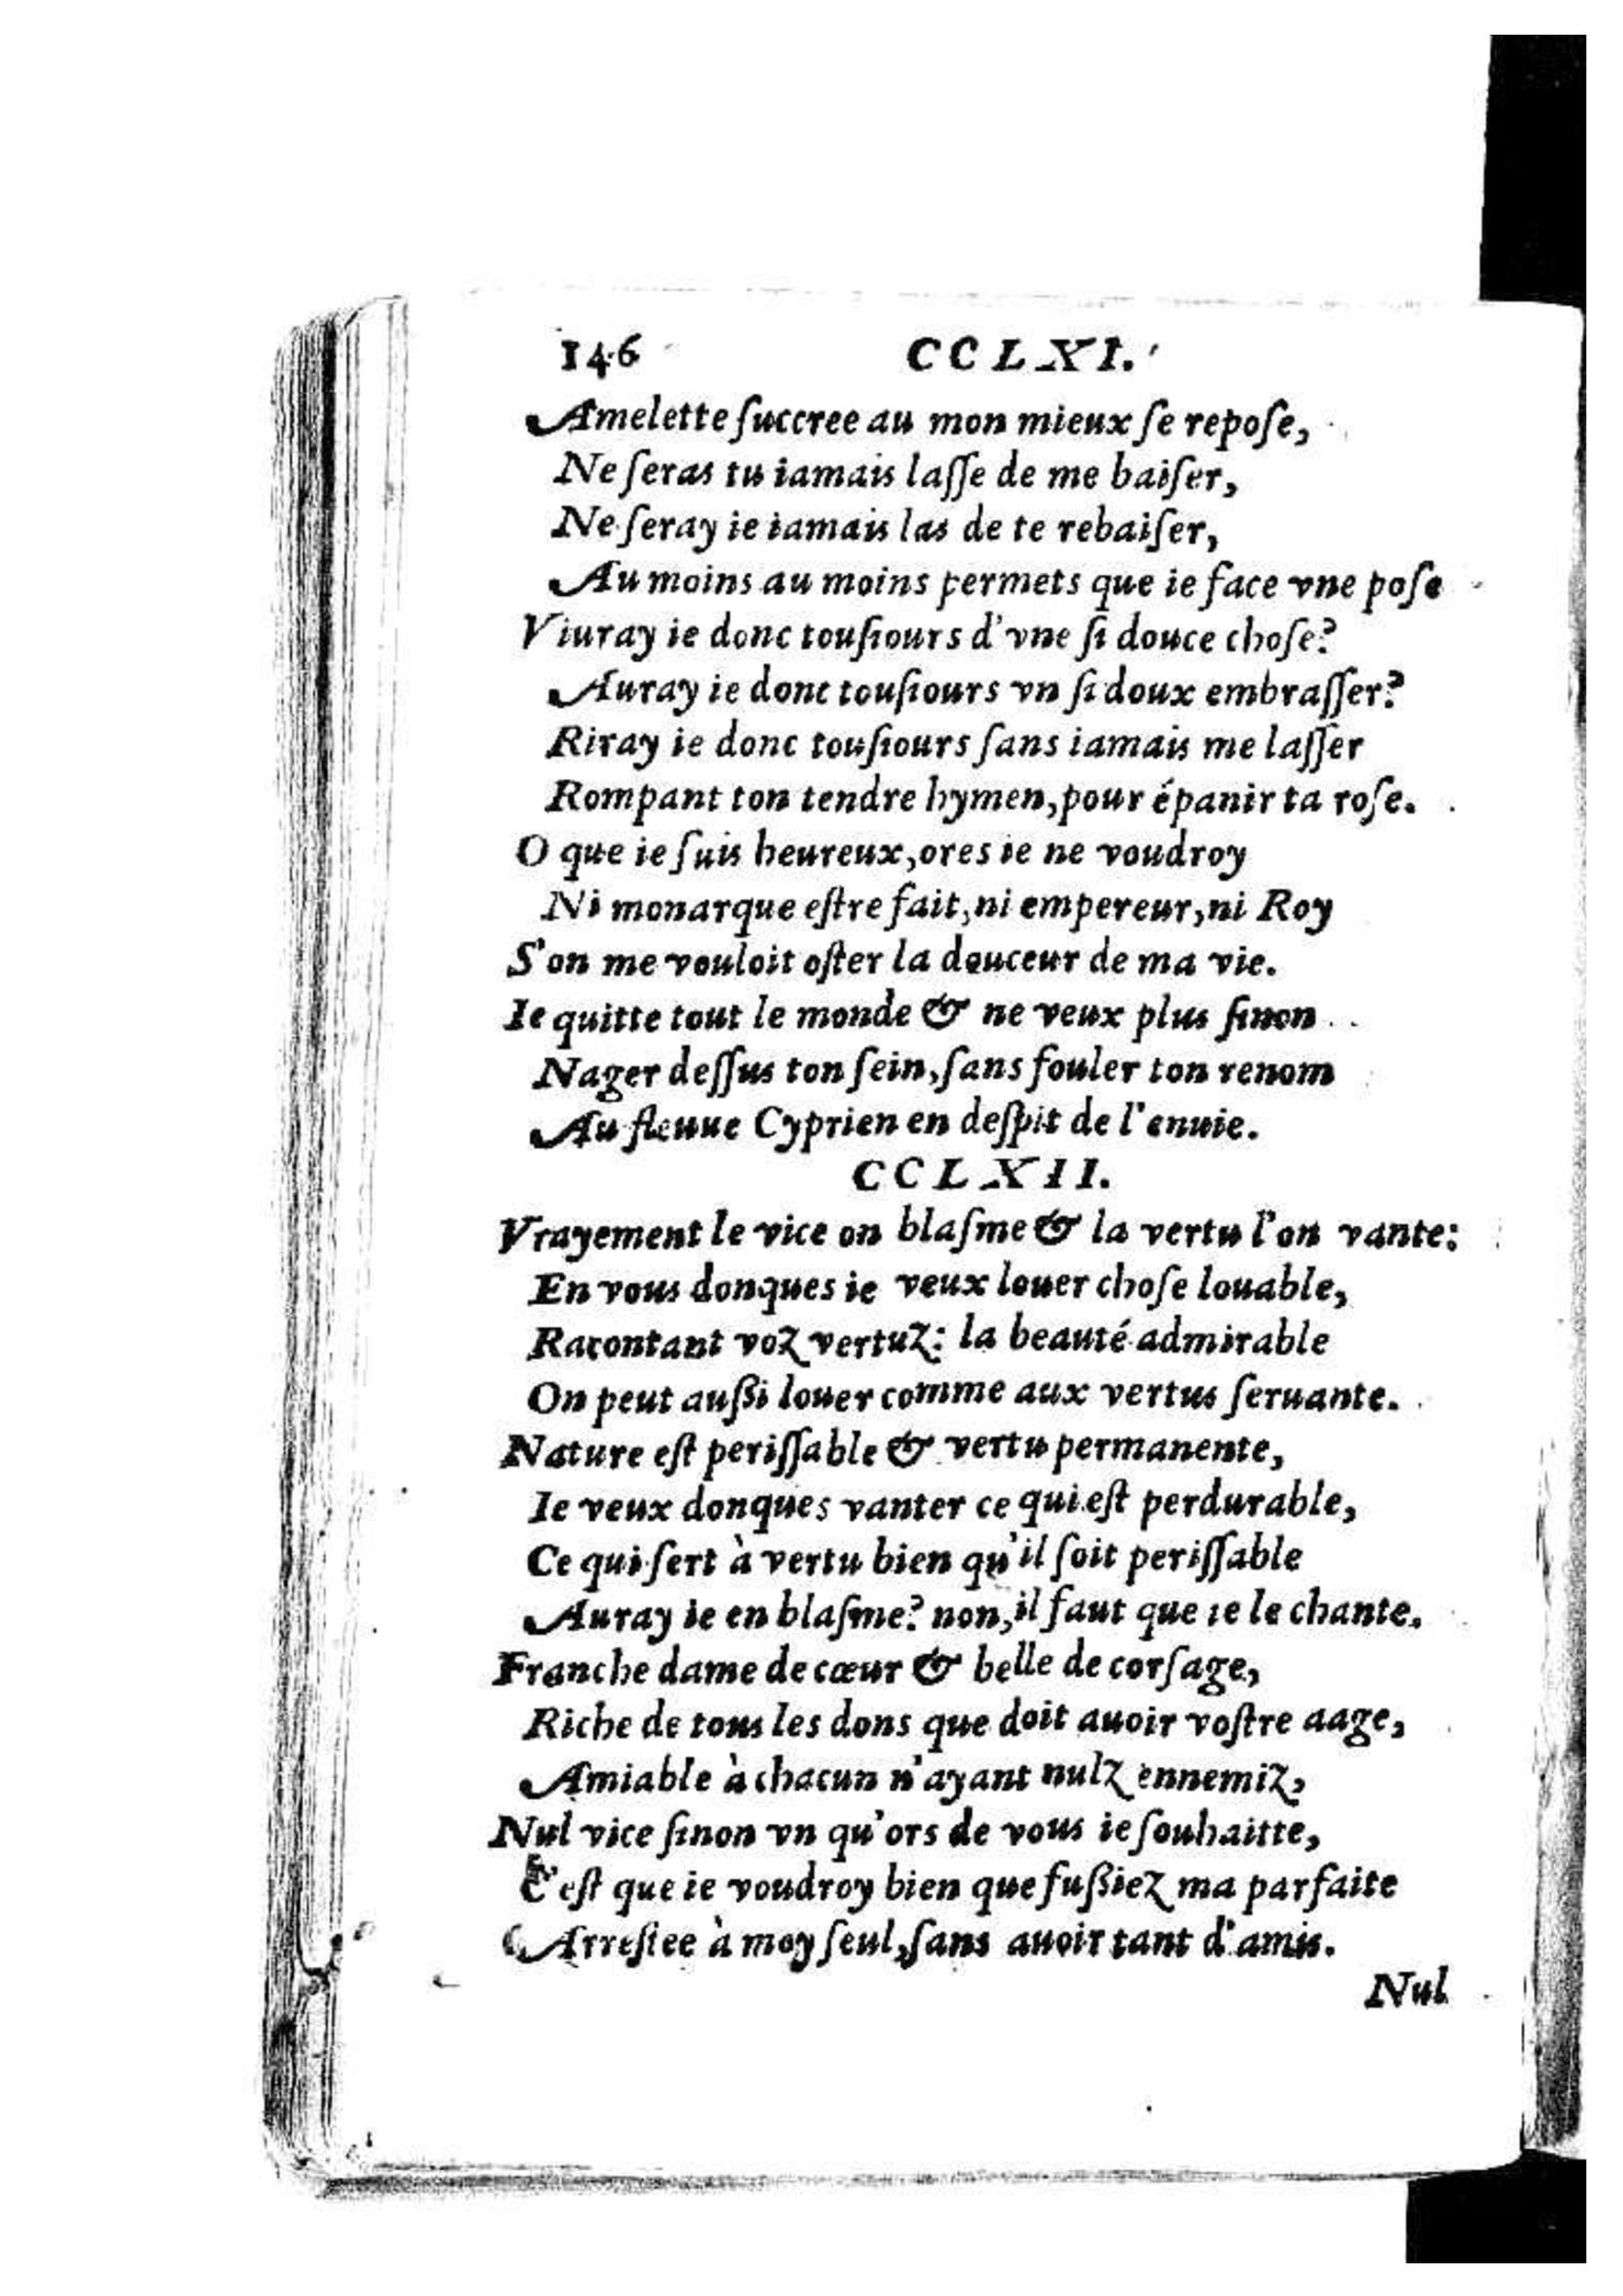 146 CCLXI.
Amelette ſuccree au mon mieux ſe repoſe,
Ne ſeras tu iamais laſſe de me baiſer,
Ne ſeray ie iamais las de te rebaiſer,
Au moins au moins permets que ie face vne poſe
Viuray ie donc touſiours d'vne ſi douce choſe?
Auray ie donc touſiours vn ſi doux embraſſer?
Riray ie donc touſiours ſans iamais me laſſer
Rompant ton tendre hymen, pour épanir ta roſe.
O que ie ſuis heureux, ores ie ne voudroy
Ni monarque eſtre fait, ni empereur, ni Roy
S'on me vouloit oſter la douceur de ma vie.
Ie quitte tout le monde & ne veux plus ſinon
Nager deſſus ton ſein, ſans fouler ton renom
Au fleuue Cyprien en deſpit de l'enuie.
CCLXII.
Vrayement le vice on blaſme & la vertu l'on vante:
En vous donques ie veux louer choſe louable,
Racontant voz vertuz: la beauté admirable
On peut auſſi louer comme aux vertus ſeruante.
Nature eſt periſſable & vertu permanente,
Ie veux donques vanter ce qui eſt perdurable,
Ce qui ſert à vertu bien qu'il ſoit periſſable
Auray ie en blaſme? non, il faut que ie le chante.
Franche dame de cœur & belle de corſage,
Riche de tous les dons que doit auoir voſtre aage,
Amiable à chacun n'ayant nulz ennemiz,
Nul vice ſinon vn qu'ors de vous ie ſouhaitte,
C'eſt que ie voudroy bien que fuſſiez ma parfaite
Arreſtee à moy ſeul, ſans auoir tant d'amis.
Nul